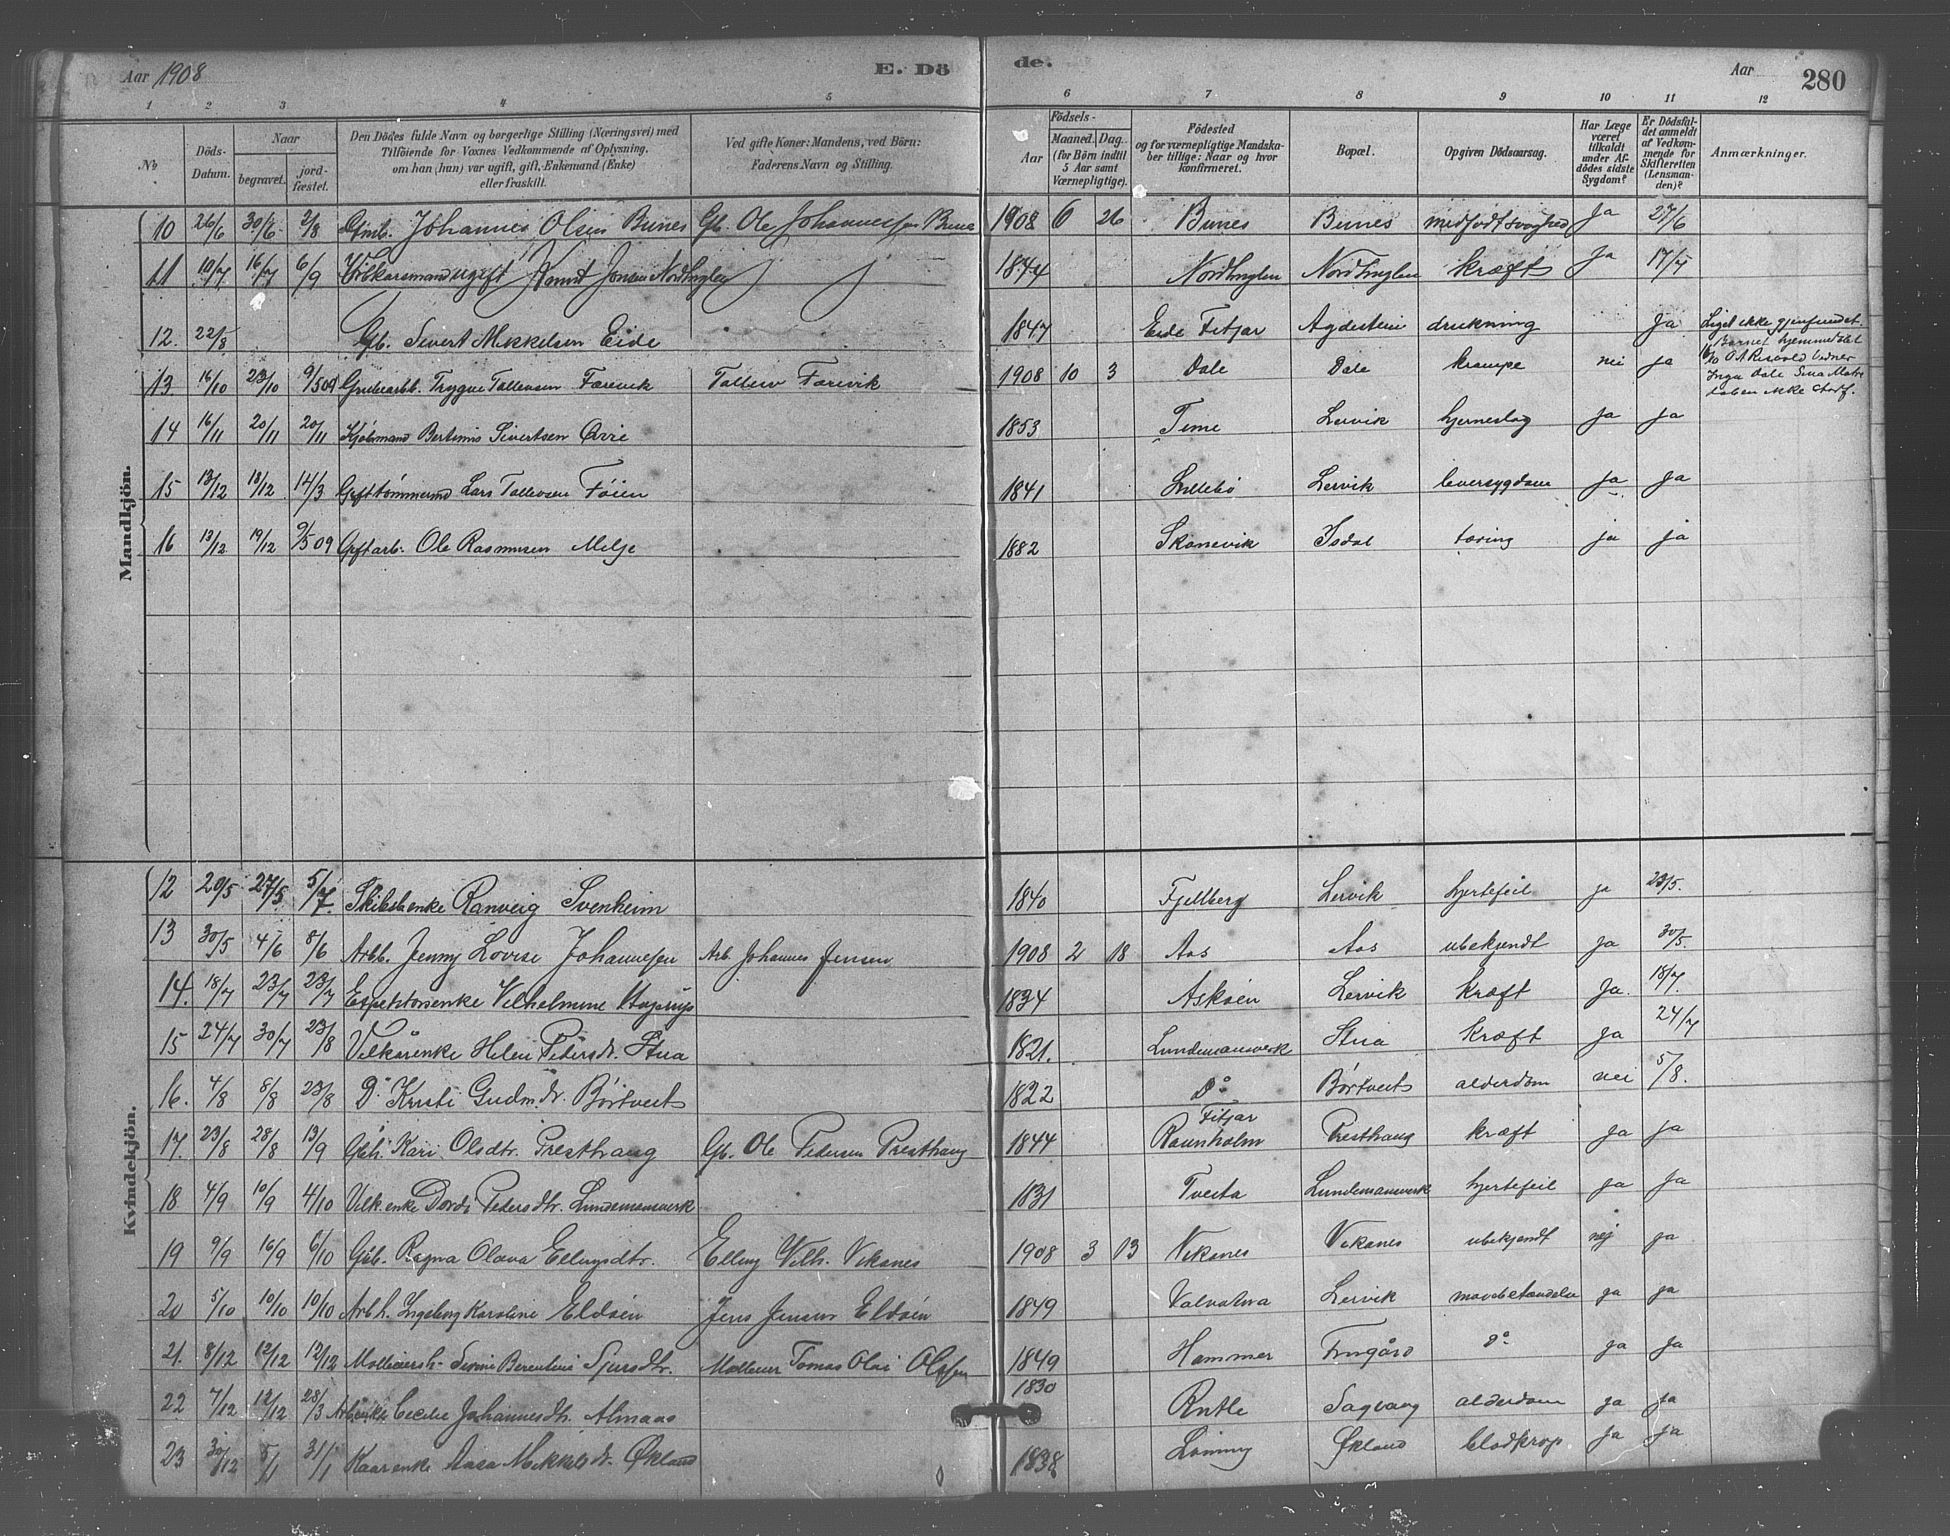 Aar 1908 E. Dö de. Aar 280
1 2 3 4 5 6 7 8 9 10 11 12
No
Döds-Datum.
Naar
begravet.
jordfæstet.
Den Dödes fulde Navn og borgerlige Stilling (Næringsvei) med
Tilföiende for Voxnes Vedkommende af Oplysning,
om han (hun) var ugift, gift, Enkemand (Enke)
eller fraskilt.
Ved gifte Koner: Mandens, ved Börn:
Faderens Navn og Stilling.
Födsels-
Aar
Maaned. Dag.
(for Börn indtil
5 Aar samt
Værnepligtige).
Födested
og for værnepligtige Mandskaber tillige: Naar og hvor
konfirmeret.
Bopæl.
Opgiven Dödsaarsag.
Har Læge
været
tilkaldt
under Afdödes sidste
Sygdom?
Er Dödsfaldet anmeldt
af Vedkommende for
Skifteretten
(Lensmanden)?
Anmærkninger.
Mandkjön.
10 26/6 30/6 2/8 Gmb. Johannes Olsen Bunes Gb. Ole Johannessen Bunes 1908 6 26 Bunes Bunes medfødt svaghed Ja 27/6
11 10/7 16/7 6/9 ugift Knut Jonsen Nordhuglen 1844 Nordhuglen Nordhuglen kræft Ja 17/7
12. 22/8 Gb. Sivert Mikkelsen Eide 1847 Eide Fitjar Agdestein drukning Ja Liget ikke gjenfundet.
13. 16/10 23/10 9/5 09 Trygve Tollevsen Færevik Tollev Færevik 1908 10 3 Dale Dale krampe nei ja Barnet hjemmedøbt
14 16/11 20/11 20/11 Kjøbmand Bertinus Sivertsen Øvre 1853 Time Lervik hjerneslag ja ja
15 13/12 18/12 14/3 Gift tømmermd Lars Tollevsen Føien 1841 Lillebø Lervik leversygdom ja ja
16 13/12 19/12 9/5 09 Gift arb. Ole Rasmusen Melje 1882 Skonevik Isdal tæring ja ja
Kvindekjön.
12 20/5 27/5 5/7. Skibsbenke Ranveig Svenheim 1840 Fjellberg Lervik hjertefeil ja 23/5.
13 30/5 4/6 8/6 Arbb. Jenny Lovise Johannesen Arb. Johannes Jensen 1908 2 18 Aas Aas ubekjendt ja 30/5.
14. 18/7 23/7 23/7 Vilhelmine 1834 Askøen Lervik kræft Ja 18/7.
15 24/7 30/7 23/8 Vilkårenke Helen Pedersdr. Stua 1821. Lundemansverk Stua kræft ja 24/7
16. 4/8 8/8 23/8 Do Kristi Gudm.dr. Børtveit 1822 Do Børtveit alderdom nei 5/8.
17. 23/8 28/8 13/9 Gbh. Kari Olsdtr. Presthaug Gb. Ole Pedersen Presthaug 1844 Fitjar Raunholm Presthaug kræft ja ja
18 4/9 10/9 4/10 Vilk.enke Dordi Pedersdtr. Lundemansverk 1831 Tveita Lundemansverk hjertefeil ja ja
19 9/9 16/9 6/10 Gbb. Ragna Olava Ellingsdtr. Elling Vilh. Vikanes 1908 3 13 Vikanes Vikanes ubekjendt nej ja
20 5/10 10/10 10/10 Arbh. Ingeborg Karoline Eldøen Jens Jensen Eldøen 1849 Valvatna Lervik ja ja
21. 8/12 12/12 12/12 Berentine Sjursdtr. Tomas Olai Olsen 1849 Hammer Do ja ja
22 7/12 12/12 28/3 Arb.enke Cecilie Johannesdtr. Almaas 1830 Rutle Sagvaag alderdom ja ja
23 30/12 5/1 31/1 Kaarenke Aasa Mikkelsdr. Økland 1838 Økland ja ja